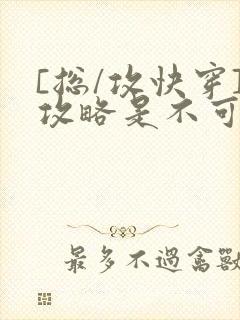 [总/攻快穿]
攻略是不可
最多不過禽獸